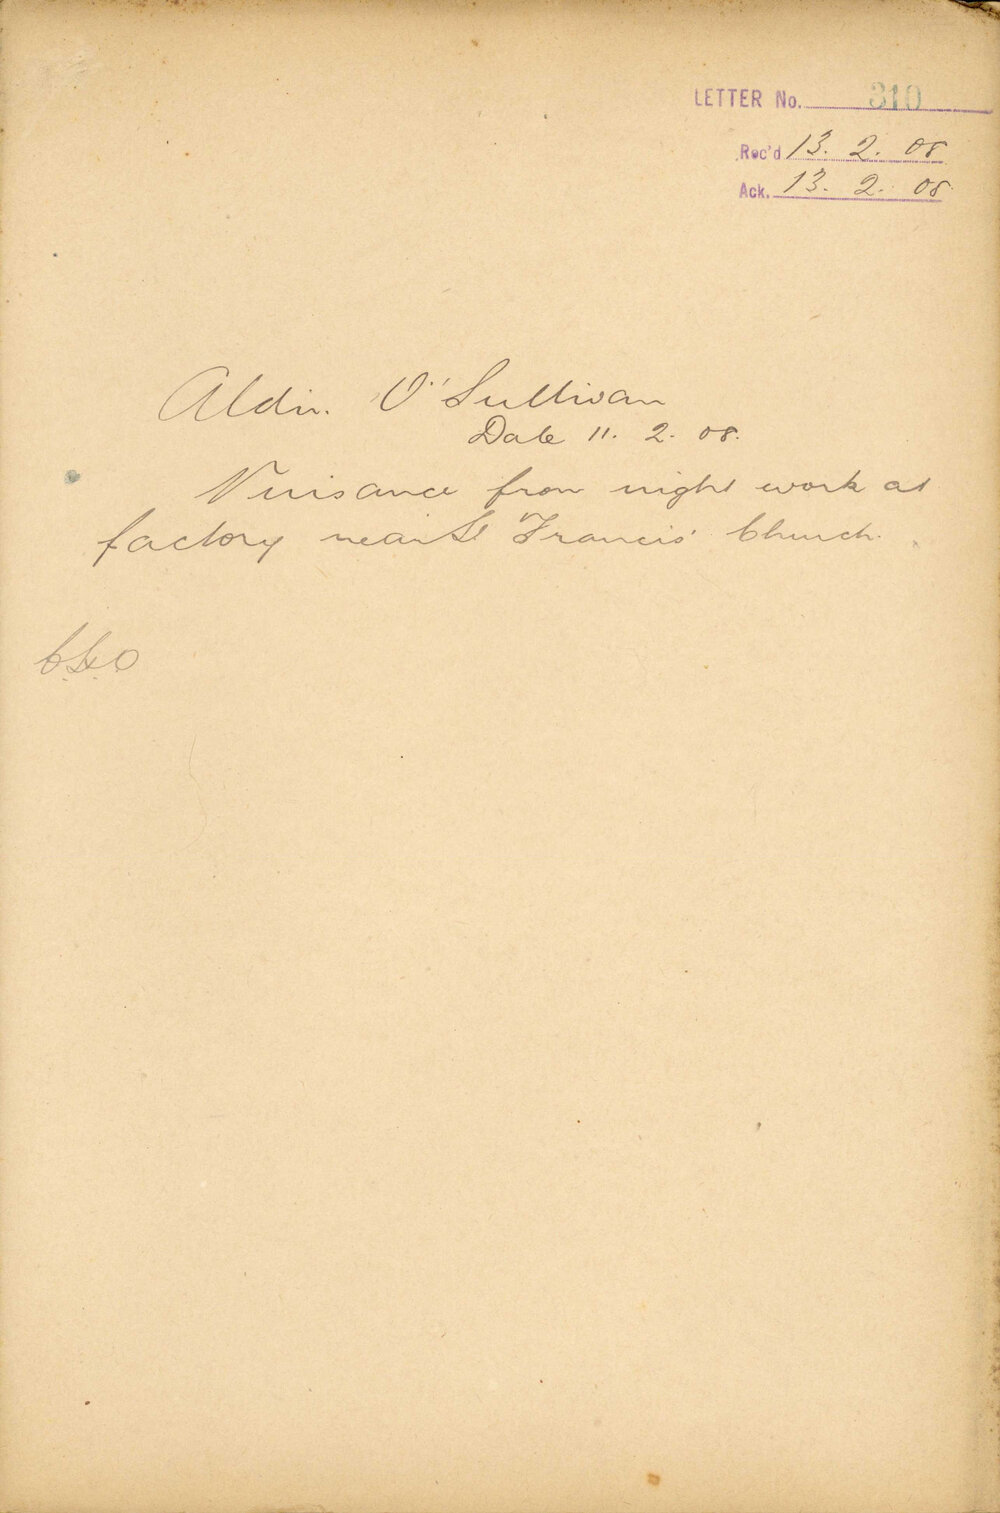 LETTER No. 310
Rec'd 13. 2. 08
Ack. 13. 2. 08.
Aldn. O'Sullivan
Date 11. 2. 08.
Nuisance from night work at
factory near St Francis' Church.